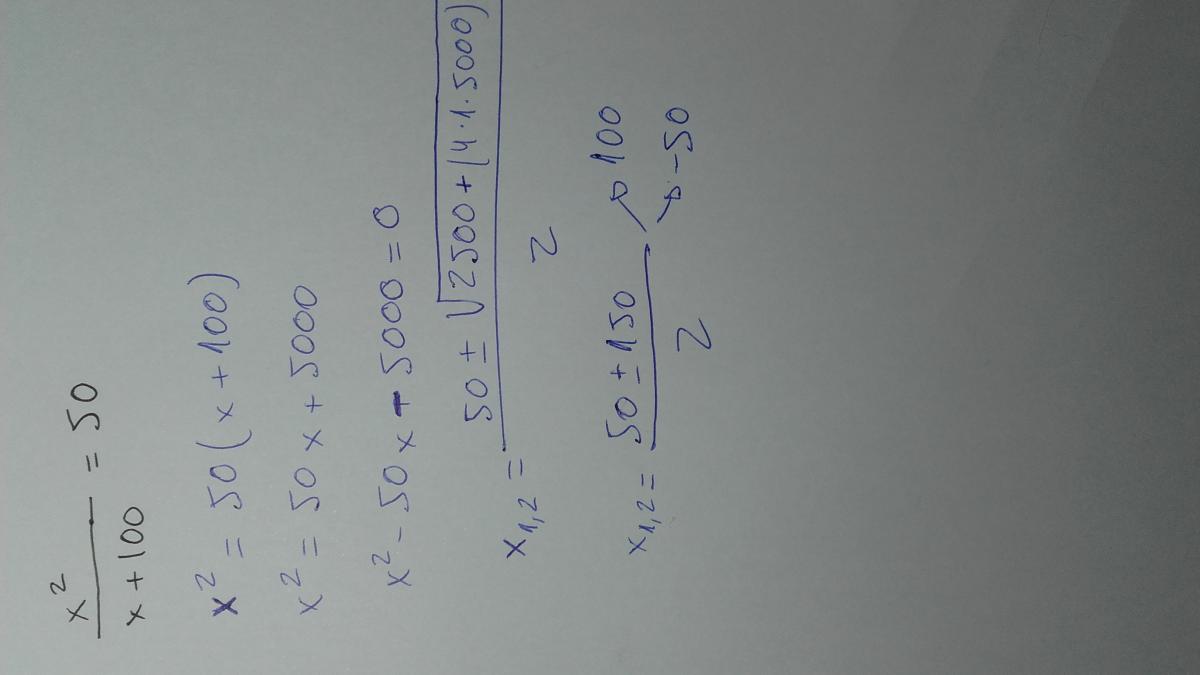 x² / x + 100 = 50
x² = 50 (x + 100)
x² = 50x + 5000
x² - 50x - 5000 = 0
x₁,₂ = 50 ± √2500 + (4·1·5000) / 2
x₁,₂ = 50 ± 150 / 2 → 100 → -50